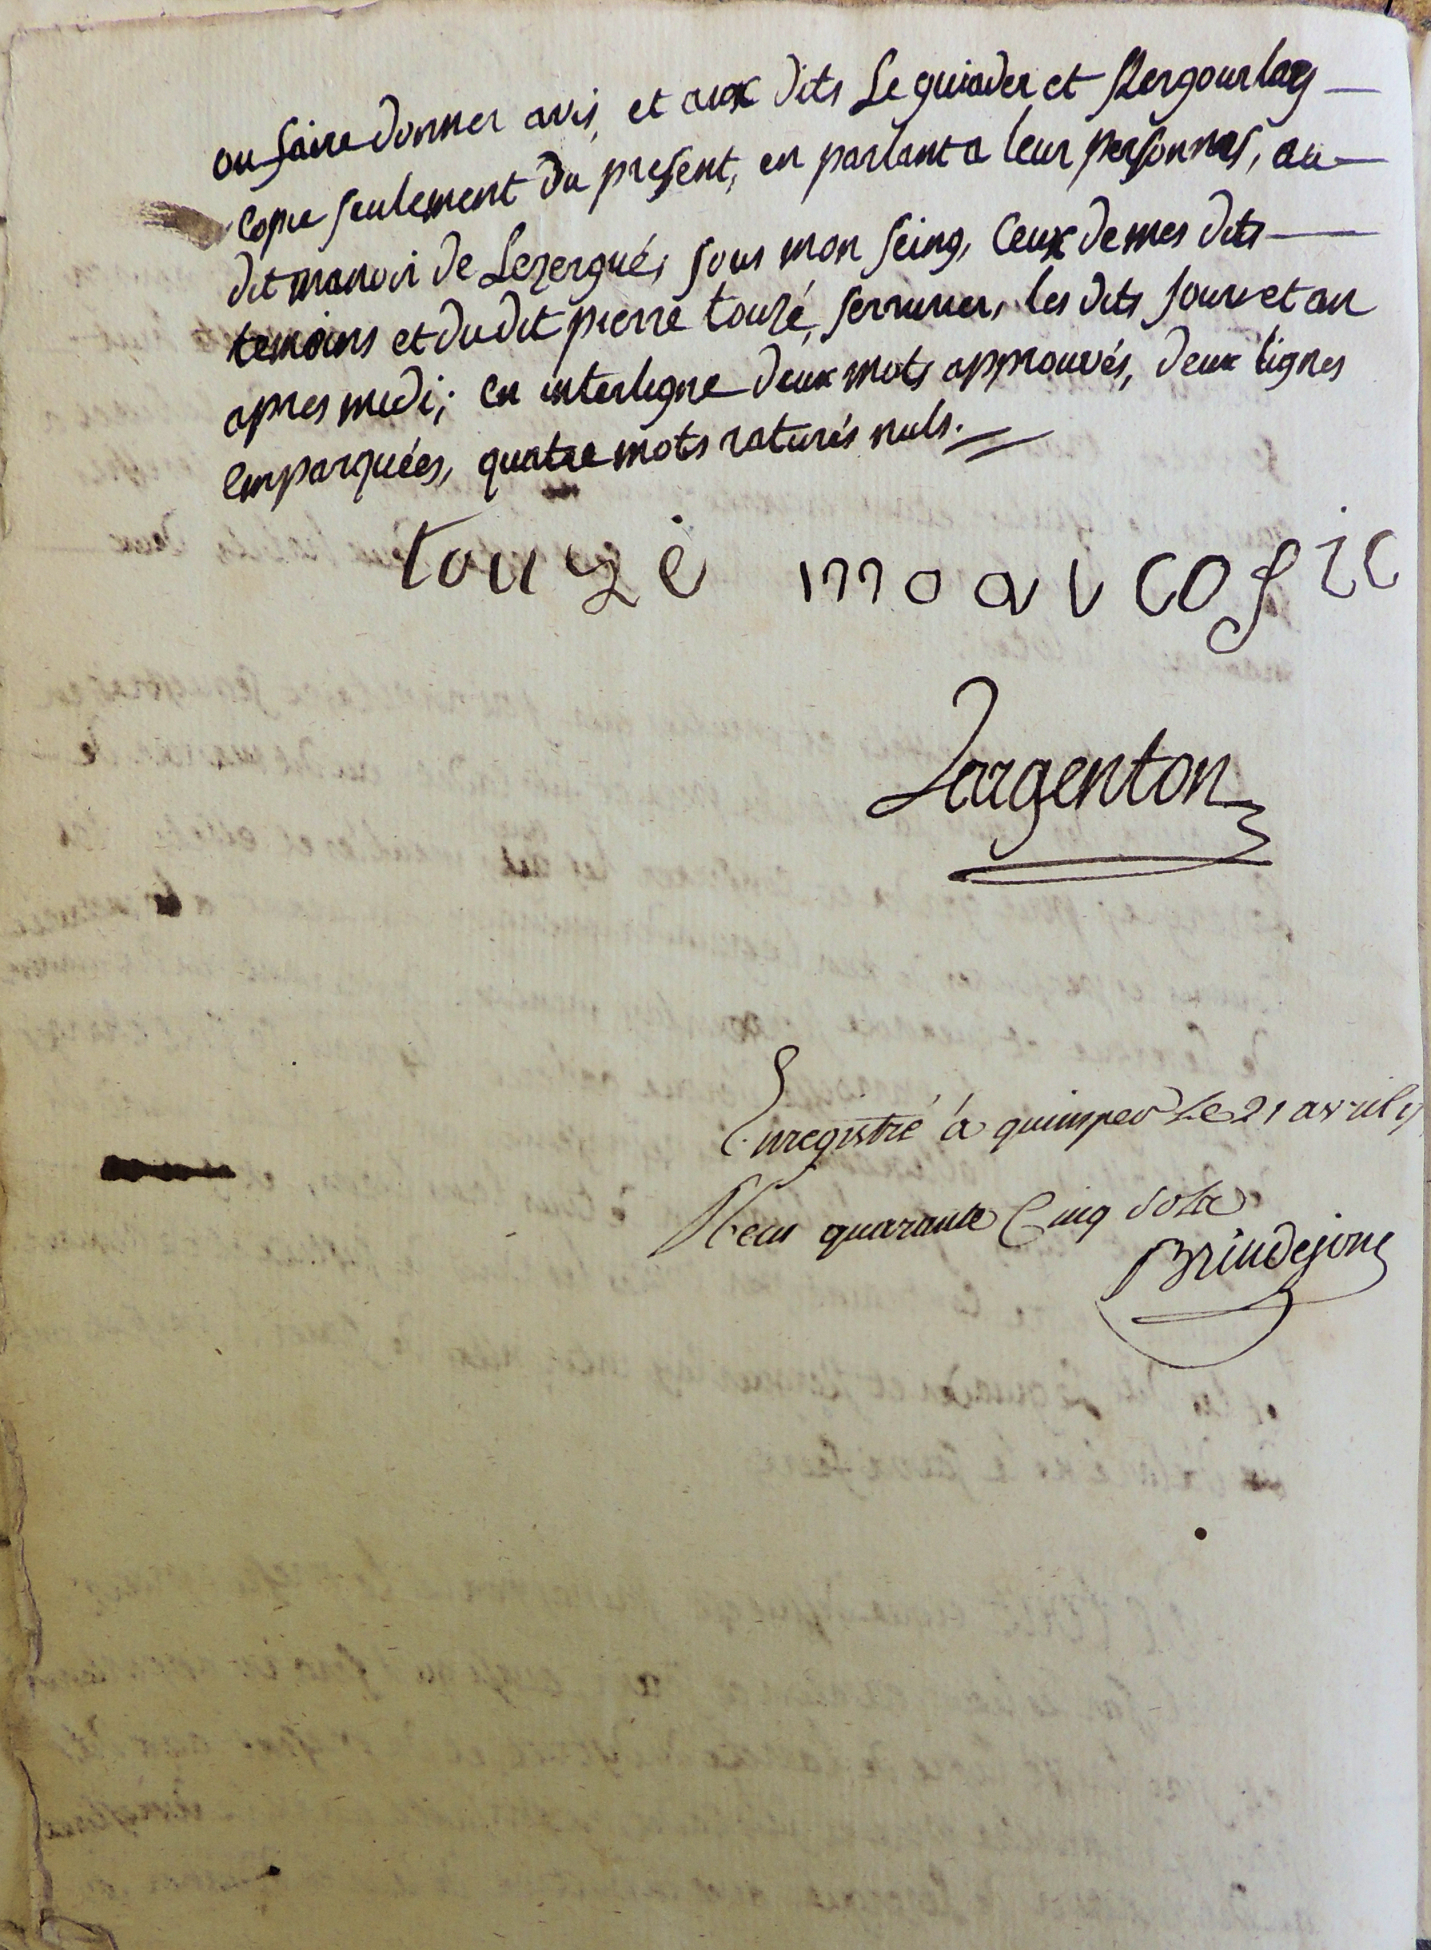 ou faire donner avis, et aux dits Le guiader et Kergourlay —
copie seulement du present, en parlant a leur personnes, au —
dit manoir de Lezergué, sous mon seing, Ceux de mes dits —
temoins et du dit pierre touzé, serrurier, les dits jour et an
apres midi; en interligne deux mots approuvés, deux lignes
emparquées, quatre mots raturés nuls.
touzé
Largenton
Enregistré á quimper Le 21 avril
Recu quarante Cinq sols
Brindejonc